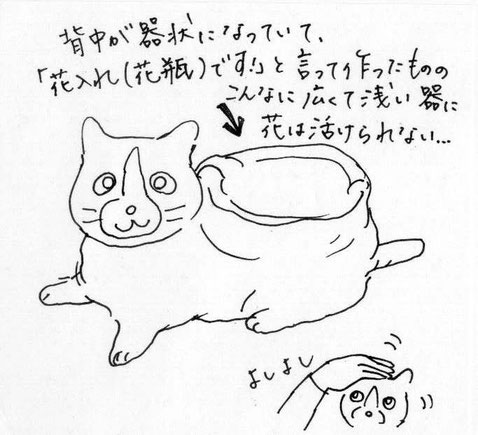 背中が器状になっていて、
「花入れ(花瓶)です!」と言って作ったものの
こんなに広くて浅い器に
花は活けられない…
よしよし